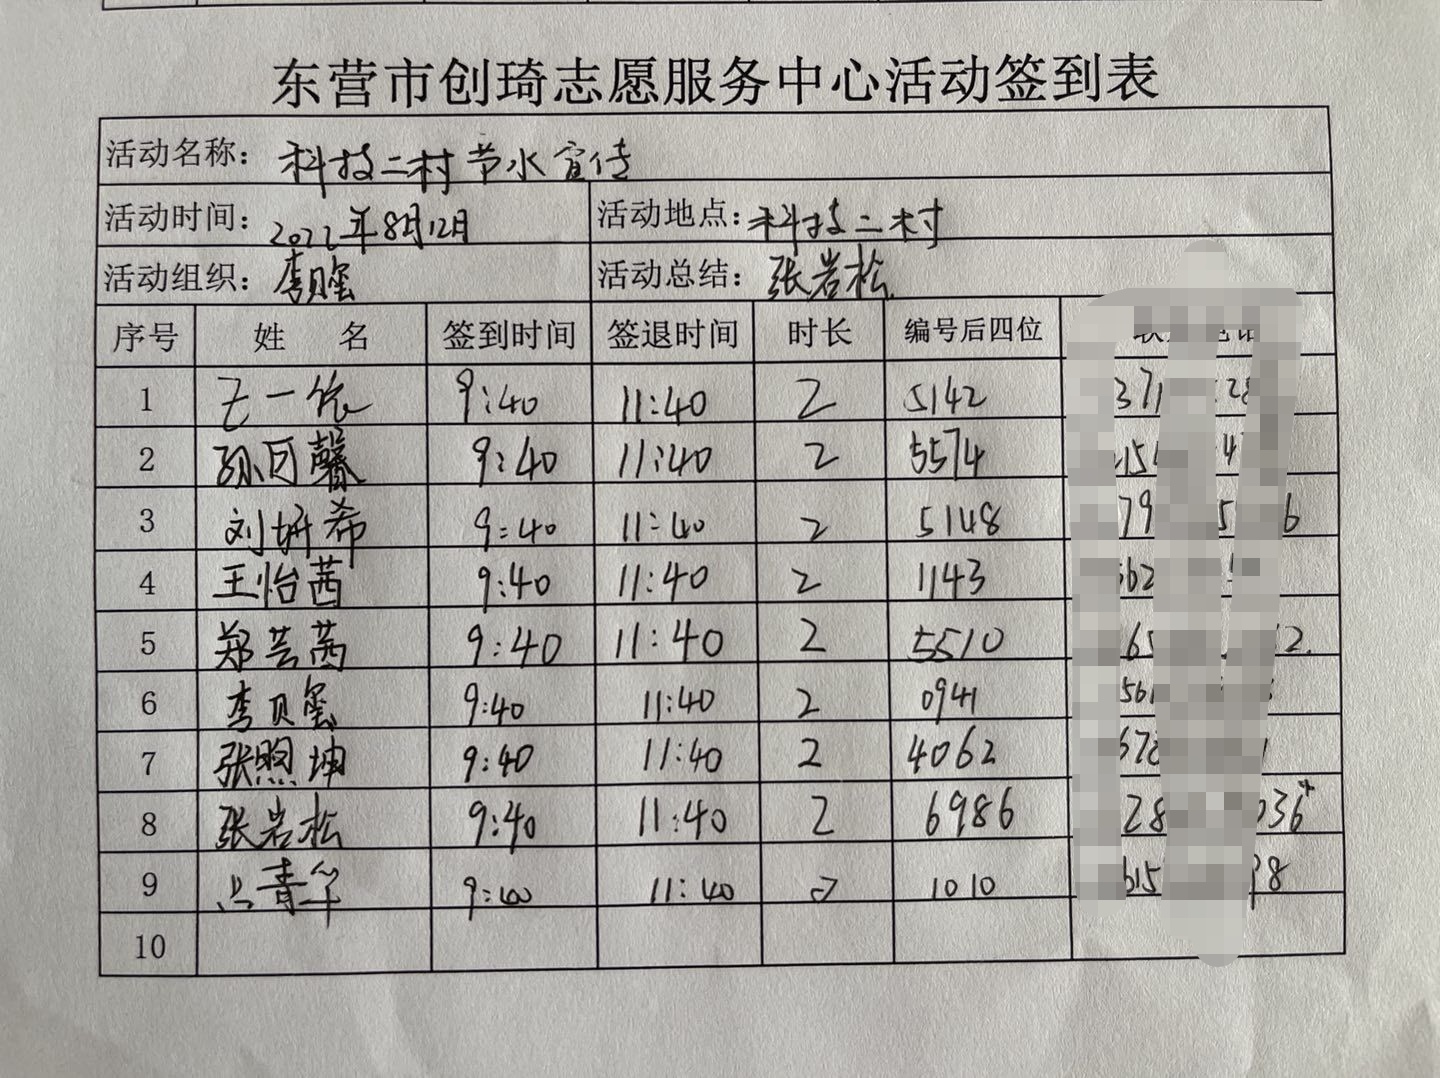 东营市创琦志愿服务中心活动签到表
活动名称：科技二村节水宣传
活动时间：2022年8月12日 活动地点：科技二村
活动组织：李贝蜜 活动总结：张岩松
序号 姓 名 签到时间 签退时间 时长 编号后四位
1 一依 9:40 11:40 2 5142
2 孙可馨 9:40 11:40 2 5574
3 刘妍希 9:40 11:40 2 5148
4 王怡茜 9:40 11:40 2 1143
5 郑芸茜 9:40 11:40 2 5510
6 李贝蜜 9:40 11:40 2 0941
7 张煦坤 9:40 11:40 2 4062
8 张岩松 9:40 11:40 2 6986
9 吕青华 9:40 11:40 2 1010
10